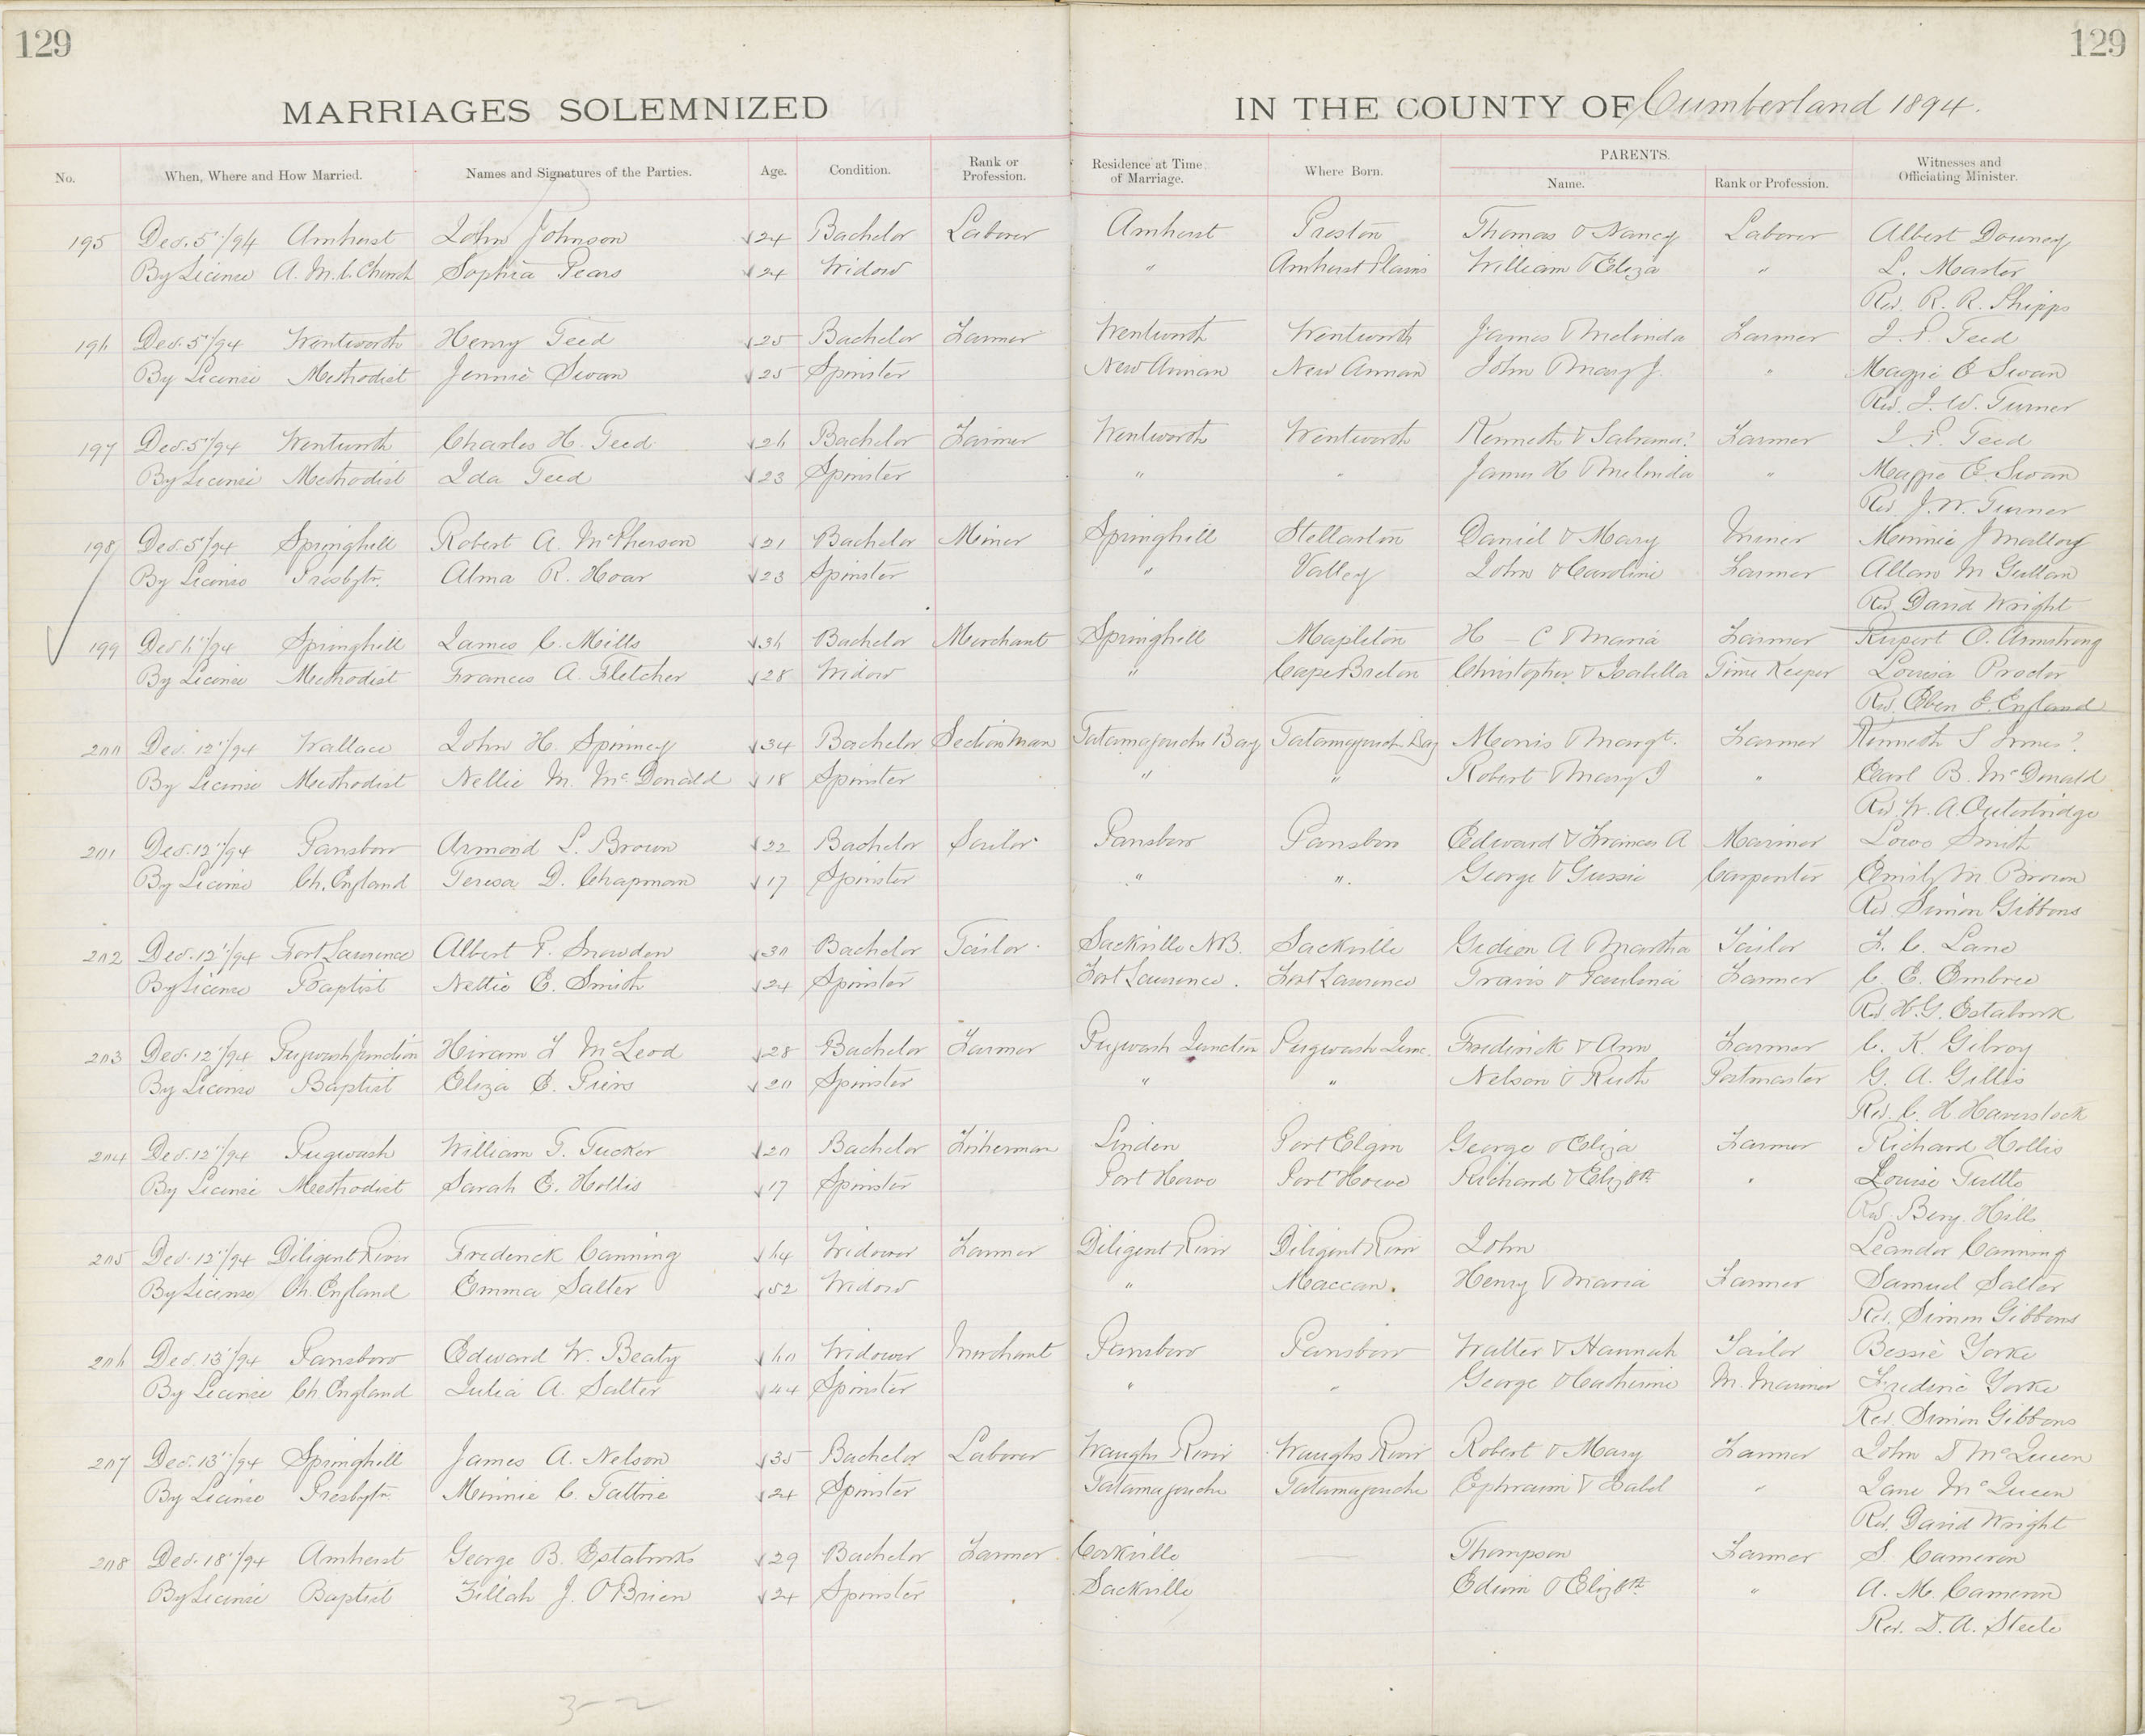 129
129
MARRIAGES SOLEMNIZED IN THE COUNTY OF Cumberland 1894.
No. When, Where and How Married. Names and Signatures of the Parties. Age. Condition. Rank or Profession. Residence at Time of Marriage. Where Born. PARENTS. Name. Rank or Profession. Witnesses and Officiating Minister.
195 Dec. 5"/94 Amherst John Johnson 24 Bachelor Laborer Amherst Preston Thomas & Nancy Laborer Albert Downey
By License A. M. C. Church Sophia Pears 24 Widow " Amherst Plains William & Eliza " L. Master
Rev. R. R. Shipps
196 Dec. 5"/94 Wentworth Henry Teed 25 Bachelor Farmer Wentworth Wentworth James & Melinda Farmer J. P. Teed
By License Methodist Jennie Swan 25 Spinster New Annan New Annan John & Mary J. " Maggie E Swan
Rev. J. W. Turner
197 Dec. 5"/94 Wentworth Charles H. Teed 26 Bachelor Farmer Wentworth Wentworth Kenneth & Farmer J. P. Teed
By License Methodist Ida Teed 23 Spinster " " James H & Melinda " Maggie E. Swan
Rev. J. W. Turner
198 Dec. 5"/94 Springhill Robert A. McPherson 21 Bachelor Miner Springhill Stellarton Daniel & Mary Miner Minnie J Mallory
By License Presbytn. Alma R. Hoar 23 Spinster " Valley John & Caroline Farmer Allan M
Rev. David Wright
199 Dec 6"/94 Springhill James C. Mills 36 Bachelor Merchant Springhill Mapleton H - C & Maria Farmer Rupert O. Armstrong
By License Methodist Frances A. Fletcher 28 Widow " Cape Breton Christopher & Isabella Time Keeper Louisa Proctor
Rev. Eben E. England
200 Dec. 12"/94 Wallace John H. Spinney 34 Bachelor Section Man Tatamagouche Bay Tatamagouche Bay Morris & Margt. Farmer Kenneth S
By License Methodist Nellie M. McDonald 18 Spinster " " Robert & Mary J " Earl B. McDonald
Rev. W. A. Outerbridge
201 Dec. 12"/94 Parrsboro Armond L. Brown 22 Bachelor Sailor Parrsboro Parrsboro Edward & Frances A Mariner Smith
By License Ch. England Teresa D. Chapman 17 Spinster " " George & Gussie Carpenter Emily M. Brown
Rev Simon Gibbons
202 Dec. 12"/94 Fort Lawrence Albert P. Snowdon 30 Bachelor Tailor Sackville N.B. Sackville Gideon A. Martha Tailor F. C. Lane
By License Baptist Nettie E. Smith 24 Spinster Fort Lawrence. Fort Lawrence Travis & Paulina Farmer C. E. Embree
Rev. H. G. Estabrook
203 Dec. 12"/94 Pugwash Junction Hiram F McLeod 28 Bachelor Farmer Pugwash Junction Pugwash Junc. Frederick & Ann Farmer C. K. Gilroy
By License Baptist Eliza E. Piers 20 Spinster " " Nelson & Ruth Postmaster G. A. Gillis
Rev. C. H. Haverstock
204 Dec. 12"/94 Pugwash William T. Tucker 20 Bachelor Fisherman Linden Port Elgin George & Eliza Farmer Richard Hollis
By License Methodist Sarah E. Hollis 17 Spinster Port Howe Port Howe Richard & Elizbth " Louise Tuttle
Rev. Benj. Hills
205 Dec. 12"/94 Diligent River Frederick Canning 64 Widower Farmer Diligent River Diligent River John Leander Canning
By License Ch. England Emma Salter 52 Widow " Maccan. Henry & Maria Farmer Samuel Salter
Rev. Simon Gibbons
206 Dec. 13"/94 Parrsboro Edward W. Beaty 60 Widower Merchant Parrsboro Parrsboro Walter & Hannah Tailor Bessie Yorke
By License Ch. England Julia A. Salter 44 Spinster " " George & Catherine M. Mariner Frederic Yorke
Rev. Simon Gibbons
207 Dec. 13"/94 Springhill James A. Nelson 35 Bachelor Laborer Waughs River Waughs River Robert & Mary Farmer John D McQueen
By License Presbytn Minnie C. Tattrie 24 Spinster Tatamagouche Tatamagouche Ephraim & Isabel " Jane McQueen
Rev. David Wright
208 Dec. 18"/94 Amherst George B. Estabrooks 29 Bachelor Farmer Corkville Thompson Farmer S. Cameron
By License Baptist Zillah J. O'Brien 24 Spinster Sackville Edwin & Elizbth " A. M. Cameron
Rev. D. A. Steele